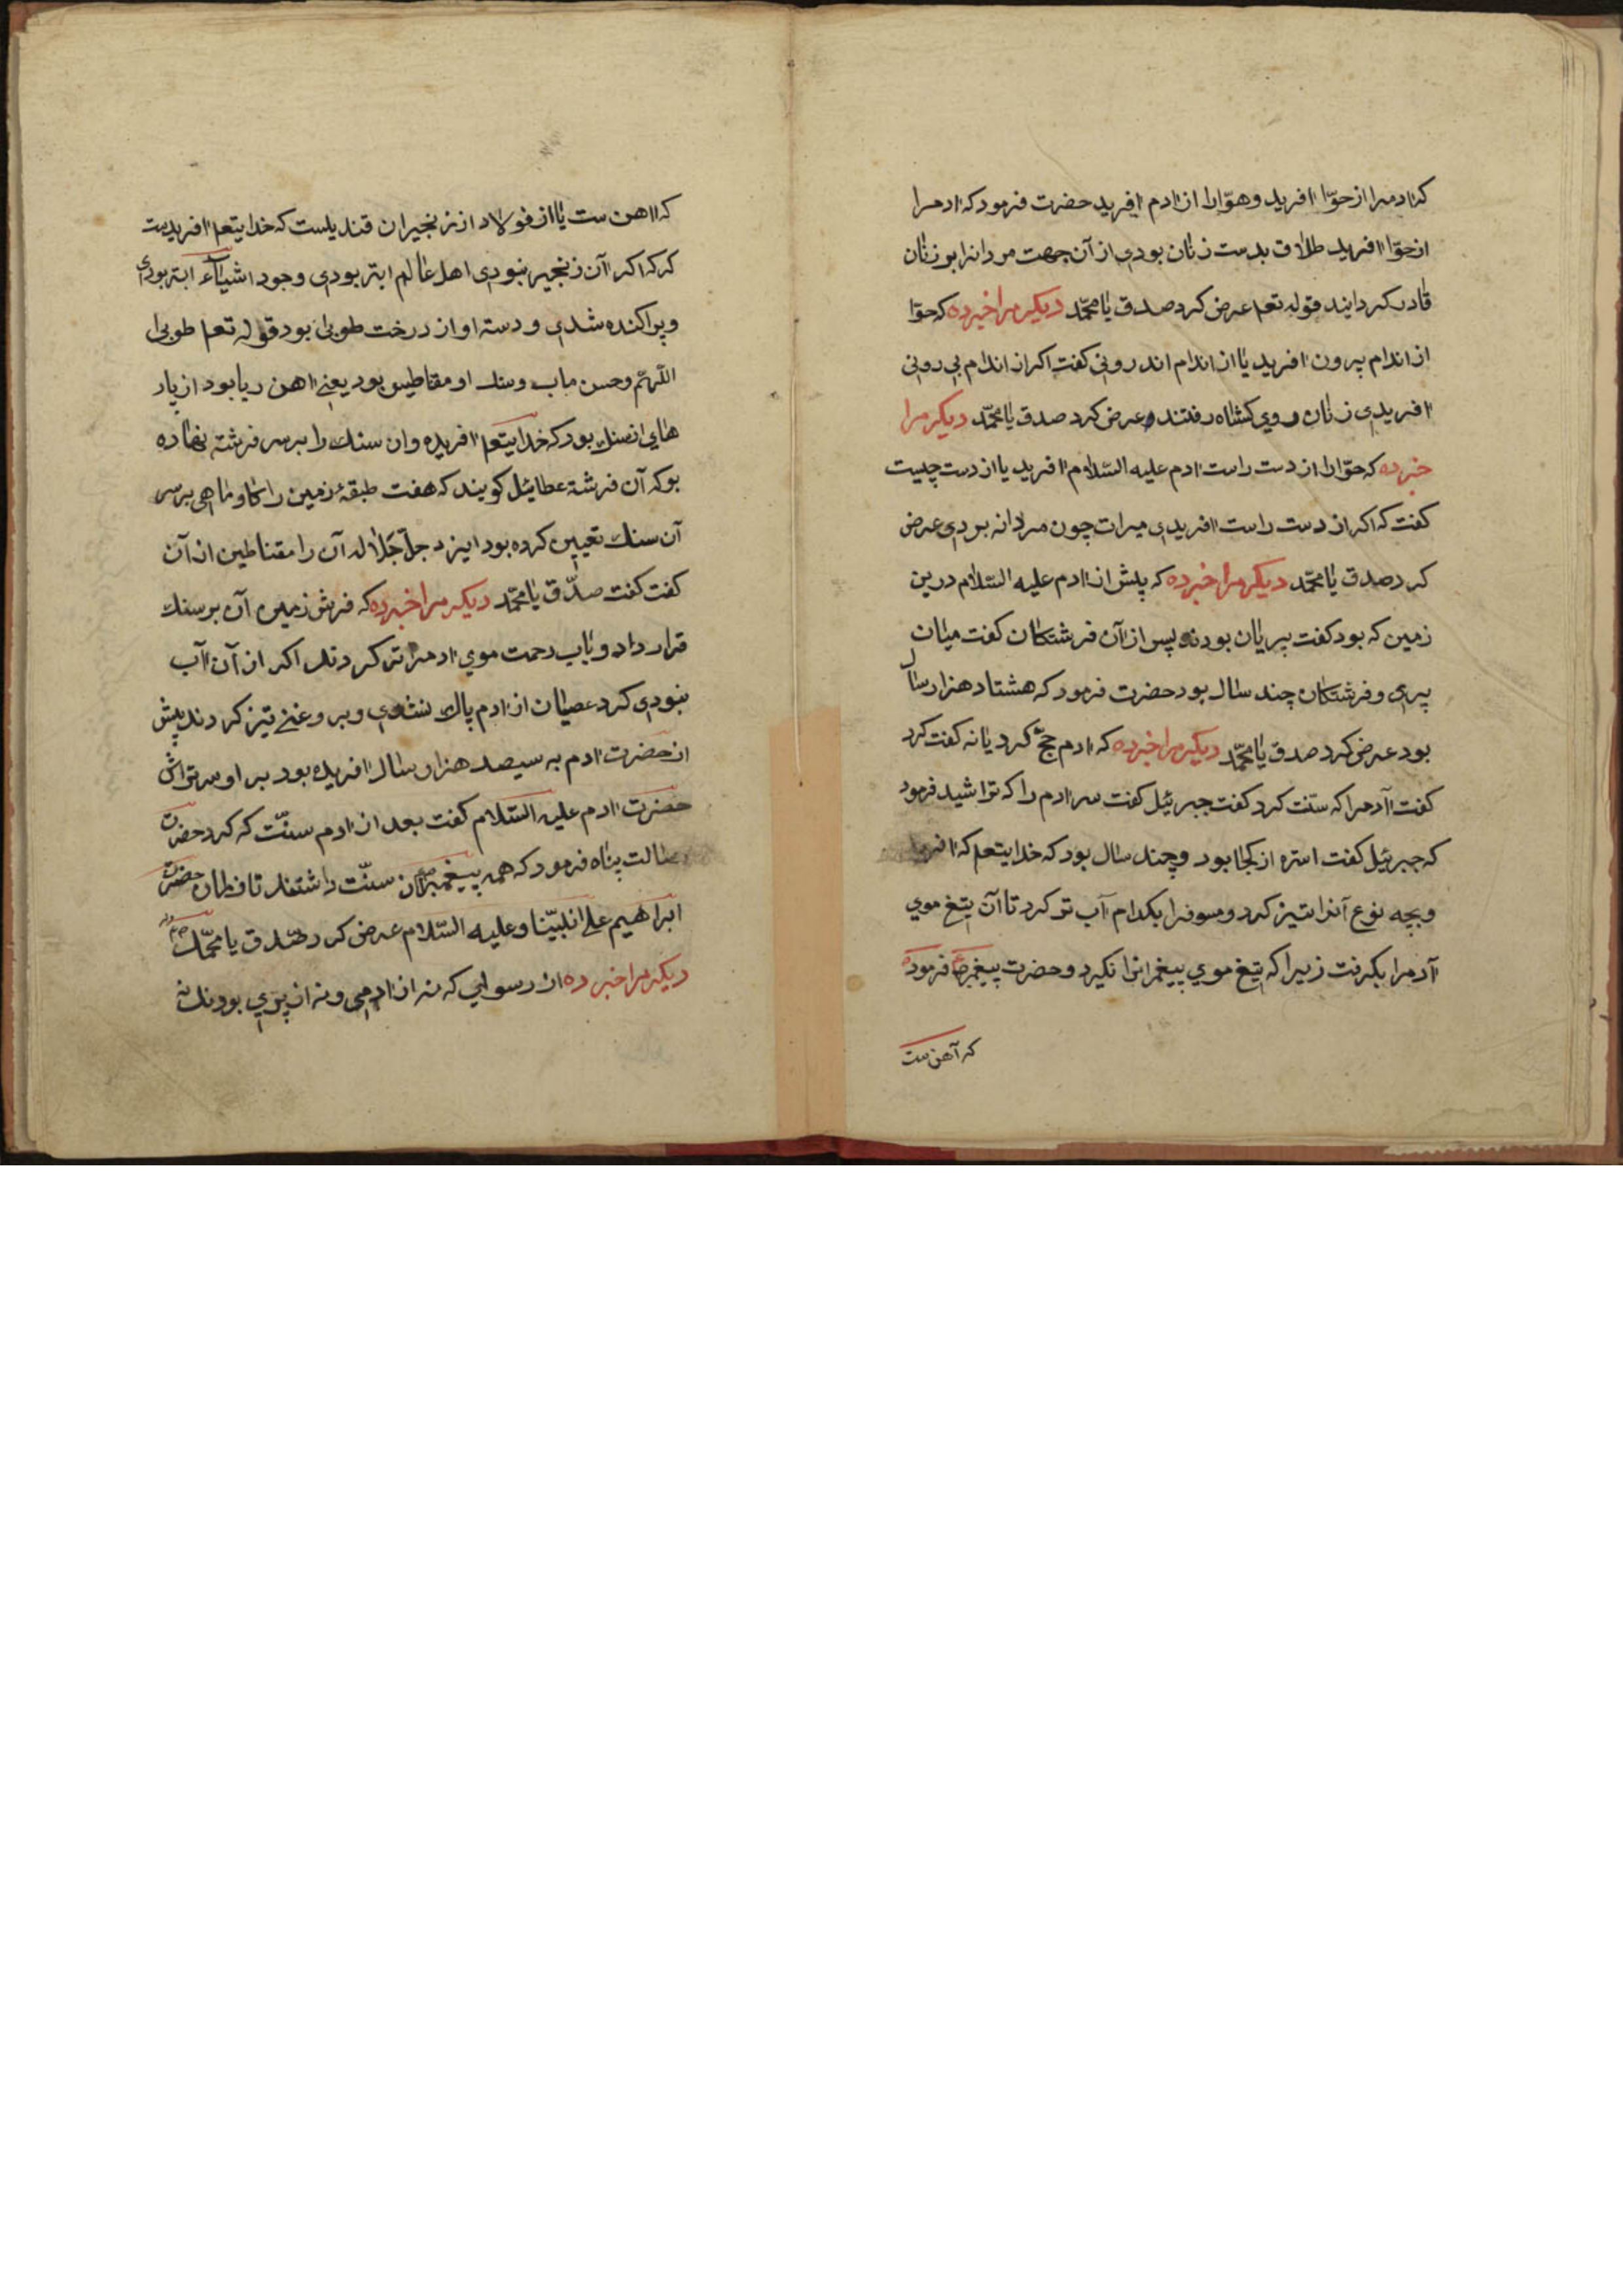 که ادمرا از حوّا افرید وهوّارا از ادم افرید حضرت فرمود که ادمرا
از حوّا افرید طلاق بدست زنان بودی از آن جهت مردانرا بر زنان
قادر کردایند قوله تعم عرض کرد صدق یا محمّد دیکر مرا خبرده که حوّا
از اندام بیرون افرید یا از اندام اندرونی کفت اکر از اندام بی رونی
افریدی زنان روی کشاه رفتند وعرض کرد صدق یا محمّد دیکر مرا
خبرده که حوّارا از دست راست ادم علیه السّلام افرید یا از دست چپست
کفت که اکر از دست راست افریدی میرات چون مردانه بودی عرض
کرد صدق یا محمّد دیکر مرا خبرده که پیش از ادم علیه السّلام درین
زمین که بود کفت پریان بودند پس از آن فرشتکان کفت میان
پری و فرشتکان چند سال بود حضرت فرمود که هشتاد هزار سال
بود عرض کرد صدق یا محمّد دیکر مرا خبرده که ادم حجّ کرد یا نه کفت کرد
کفت آدمرا که سنّت کرد کفت جبرئیل کفت سر ادم را که تراشید فرمود
که جبرئیل کفت استره از کجا بود وچند سال بود که خدایتعم که افرید
وبچه نوع آنرا تیز کرد و بکدام آب تر کرد تا آن تیغ موی
آدمرا بکرفت زیرا که تیغ موی پیغمرانرا نکیرد وحضرت پیغمبر فرموده
که آهن ست
که اهن ست یا از فولاد از زنجیران قندیلست که خدایتعم افریدست
کرکه اکر آن زنجیر نبودی اهل عالم ابتر بودی وجود اشیاء ابتر بودی
و پراکنده شدی و دسته او از درخت طوبی بود قوله تعم طوبی
اللّهم وحسن ماب وسنك او مقناطیس بود یعنی اهن ربا بود از پار
های انسنك بود که خدایتعم افریده وان سنك را بر سر فرشته نهاده
بوکه آن فرشته عطائیل کویند که هفت طبقهٔ زمین را کاو ماهی بر سر
آن سنك تعیین کرده بود ایزد جلّ جَلاله آن را مقناطین از آن
کفت کفت صدّق یا محمّد دیکر مرا خبرده که فرش زمین آن بر سنك
قرار داد و باب رحمت موی ادمرا تر کردند اکر از آن آب
نبودی کرد عصیان از ادم پاك نشدی وبر وغنی تیز کردند پیش
از حضرت ادم به سیصد هزار سال افریده بود بر او سر تراش
حضرت ادم علیه السّلام کفت بعد از ادم سنّت که کرد حضرت
رسالت پناه فرمود که همه پیغمبران سنّت داشتند تا زمان حضرت
ابراهیم علی نبیّنا وعلیه السّلام عرض کرد صدق یا محمّد
دیکر مرا خبرده از رسولی که نه از ادمی و نه از پری بودند نه